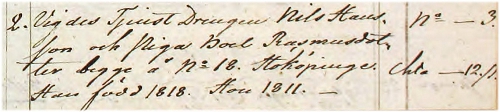 2. Vigdes Tjenst Drengen Nils Hans- No — 3.
son och Pigan Boel Rasmusdot-
ter begge å No 18. Stoköpinge. — 12,
Han född 1818. Hon 1811. —